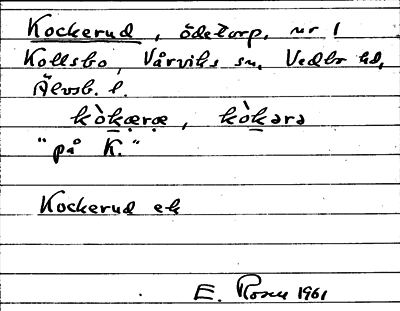 Kockerud, ödetorp, nr 1
Kollsbo, Vårviks sn, Vedbo hd,
Älvsb. l.
kòkæræ, kòkərə
"på K."
Kockerud ek
E. Rosen 1961